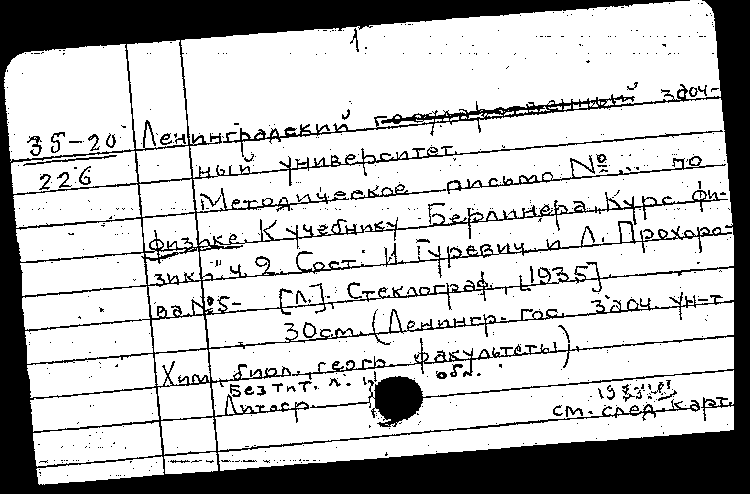 1.
35-20
226
Ленинградский государственный заоч-
ный университет.
Методическое письмо №... по
физике. К учебнику Берлинера "Курс фи-
зики" ч. 2. Сост: И. Гуревич и Л. Прохоро-
ва. №5- [Л.], Стеклограф., [1935].
30см. (Ленингр. гос. заоч. ун-т
Хим., биол., геогр. факультеты).
Без тит. л. и обл.
Литогр.
см. след. карт.